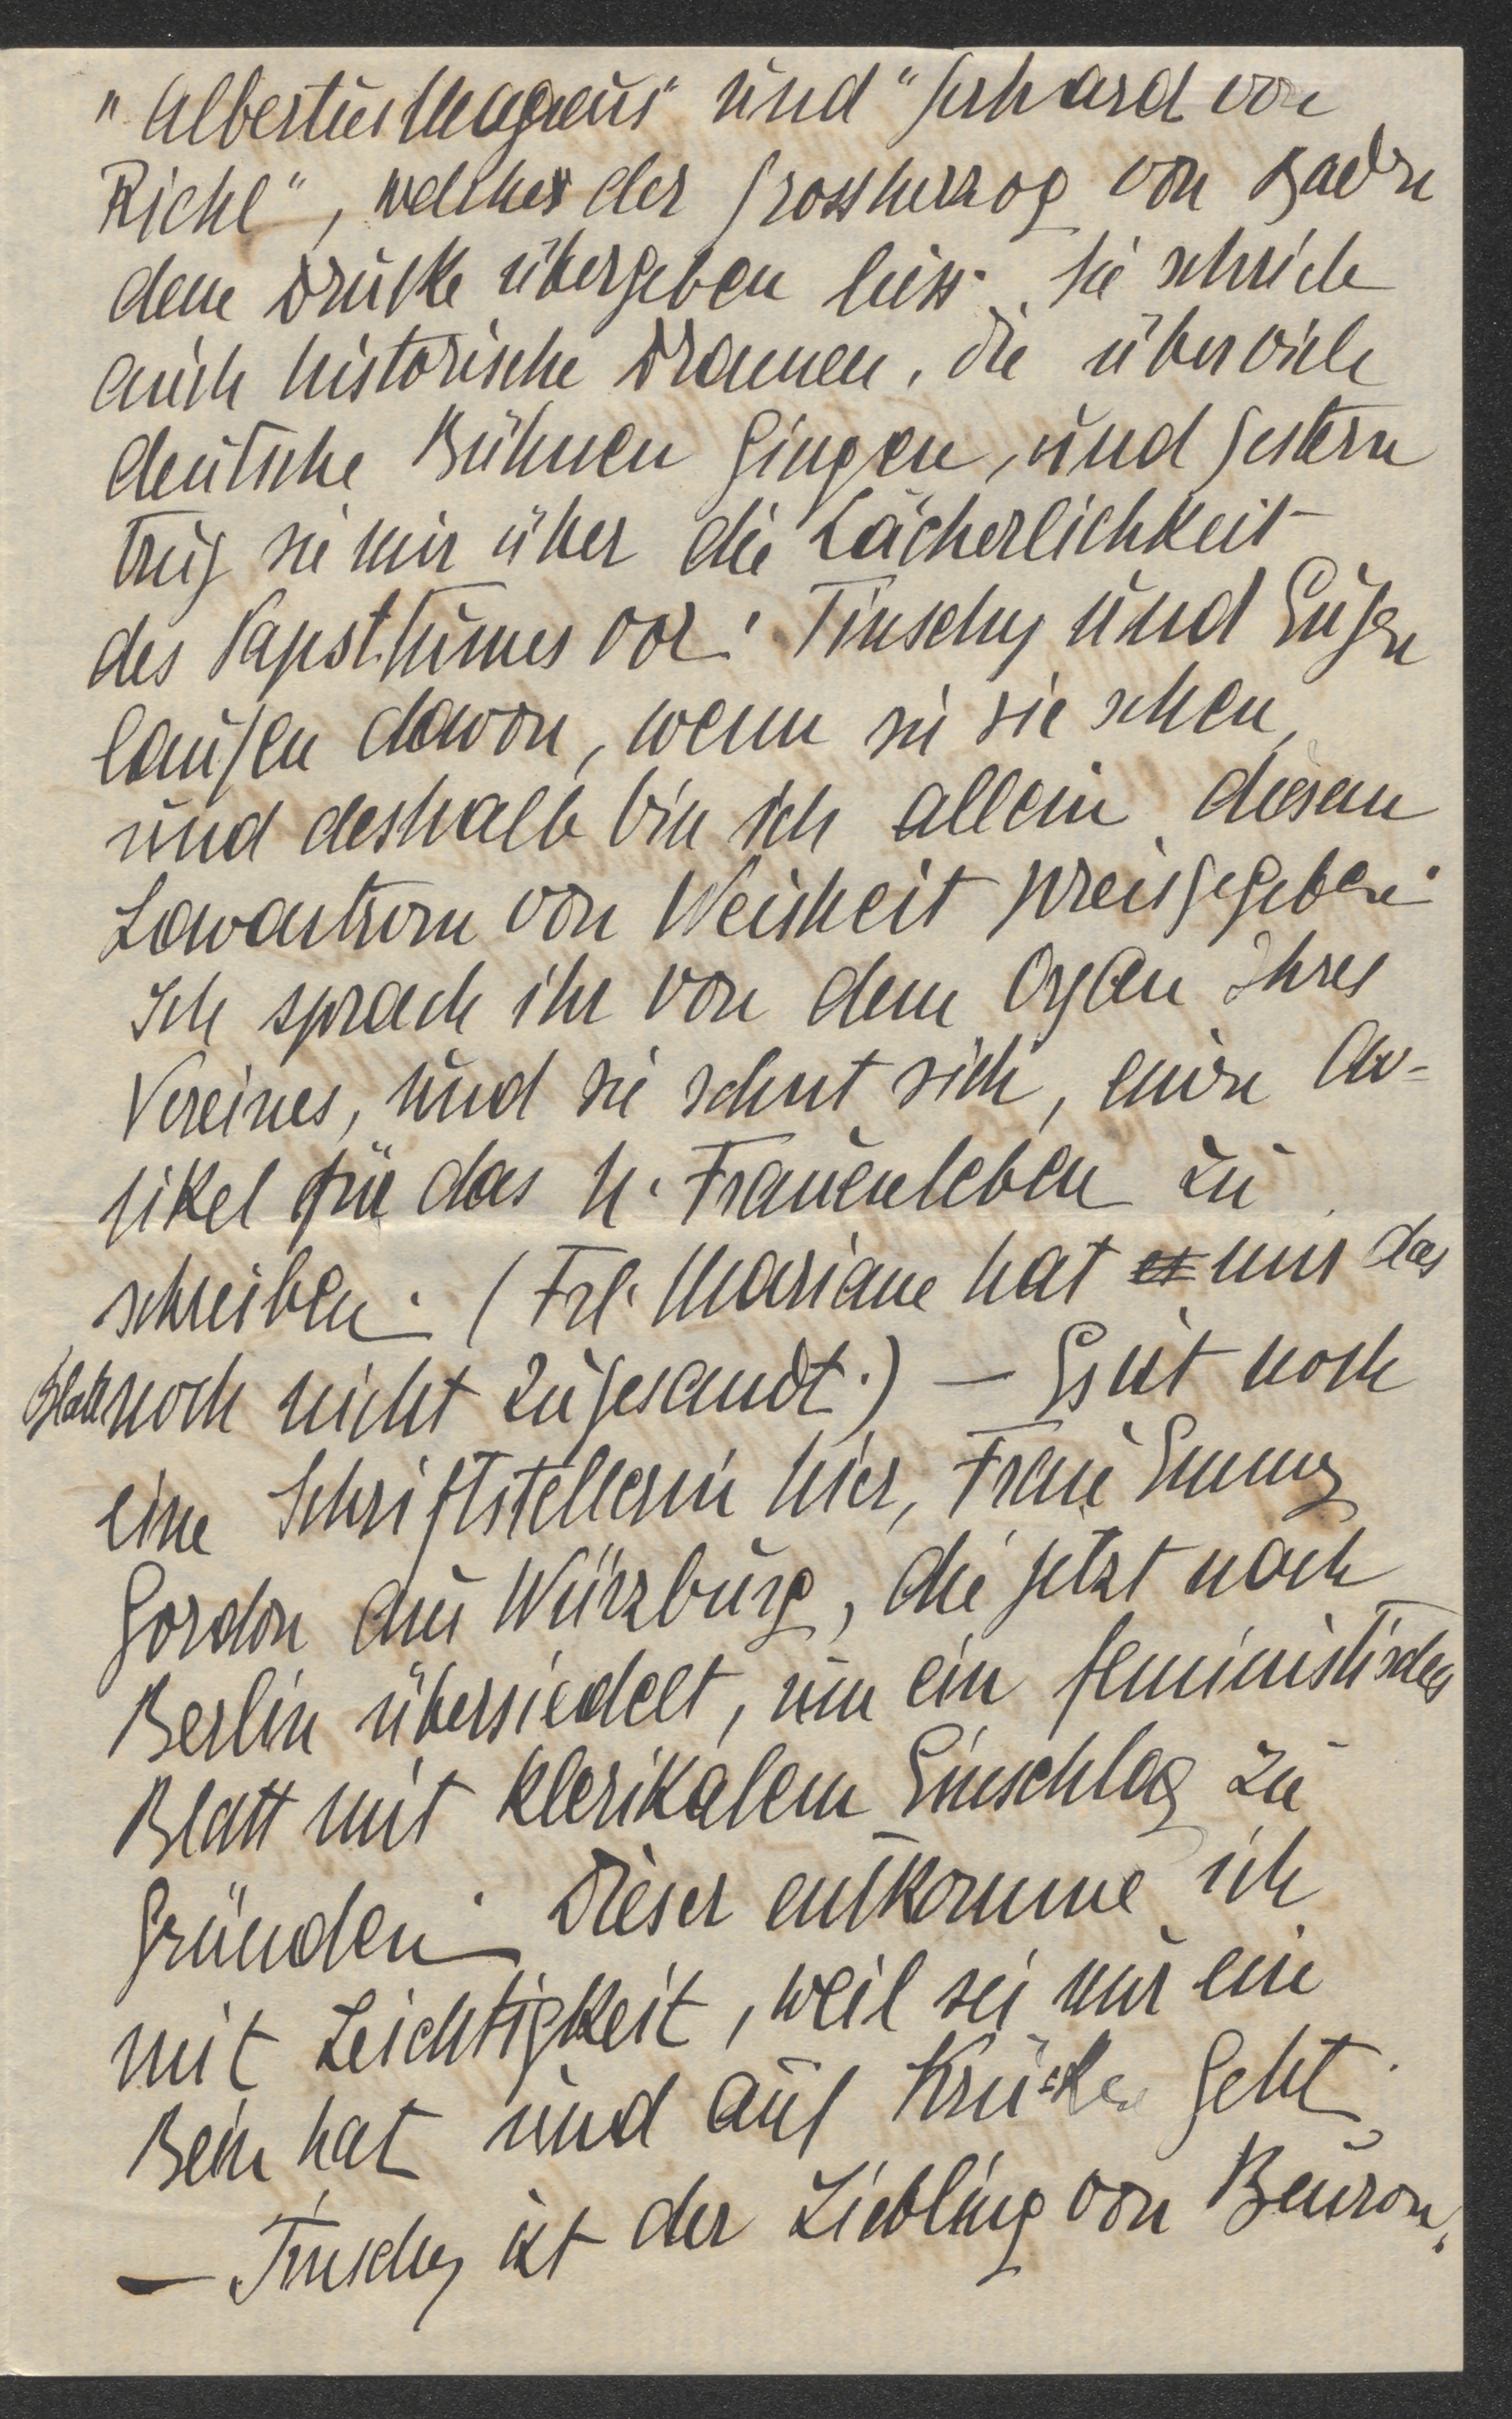 "Albertus Magnus" und "Gerhard von
Riehl", welches der Grossherzog von Baden
dem Drucke übergeben liess. Sie schrieb
auch historische Dramen, die über viele
deutsche Bühnen gingen, und gestern
trug sie mir über die Lächerlichkeit
des Papsttumes vor! Tinschy und Eugen
laufen davon, wenn sie sie sehen,
und deshalb bin ich allein diesem
Lavastrom von Weisheit preisgegeben.
Ich sprach ihr von dem Organ Ihres
Vereines, und sie sehnt sich, einen Ar-
tikel für das N. Frauenleben zu
schreiben. (Frl. Mariane hat es mir das
Blatt noch nicht zugesandt.) — Es ist noch
eine Schriftstellerin hier, Frau Emmy
Gordon aus Würzburg, die jetzt nach
Berlin übersiedelt, um ein feministisches
Blatt mit klerikalem Einschlag zu
gründen. Dieser entkomme ich
mit Leichtigkeit, weil sie nur ein
Bein hat und auf Krücken geht.
— Tinschy ist der Liebling von Beuron,